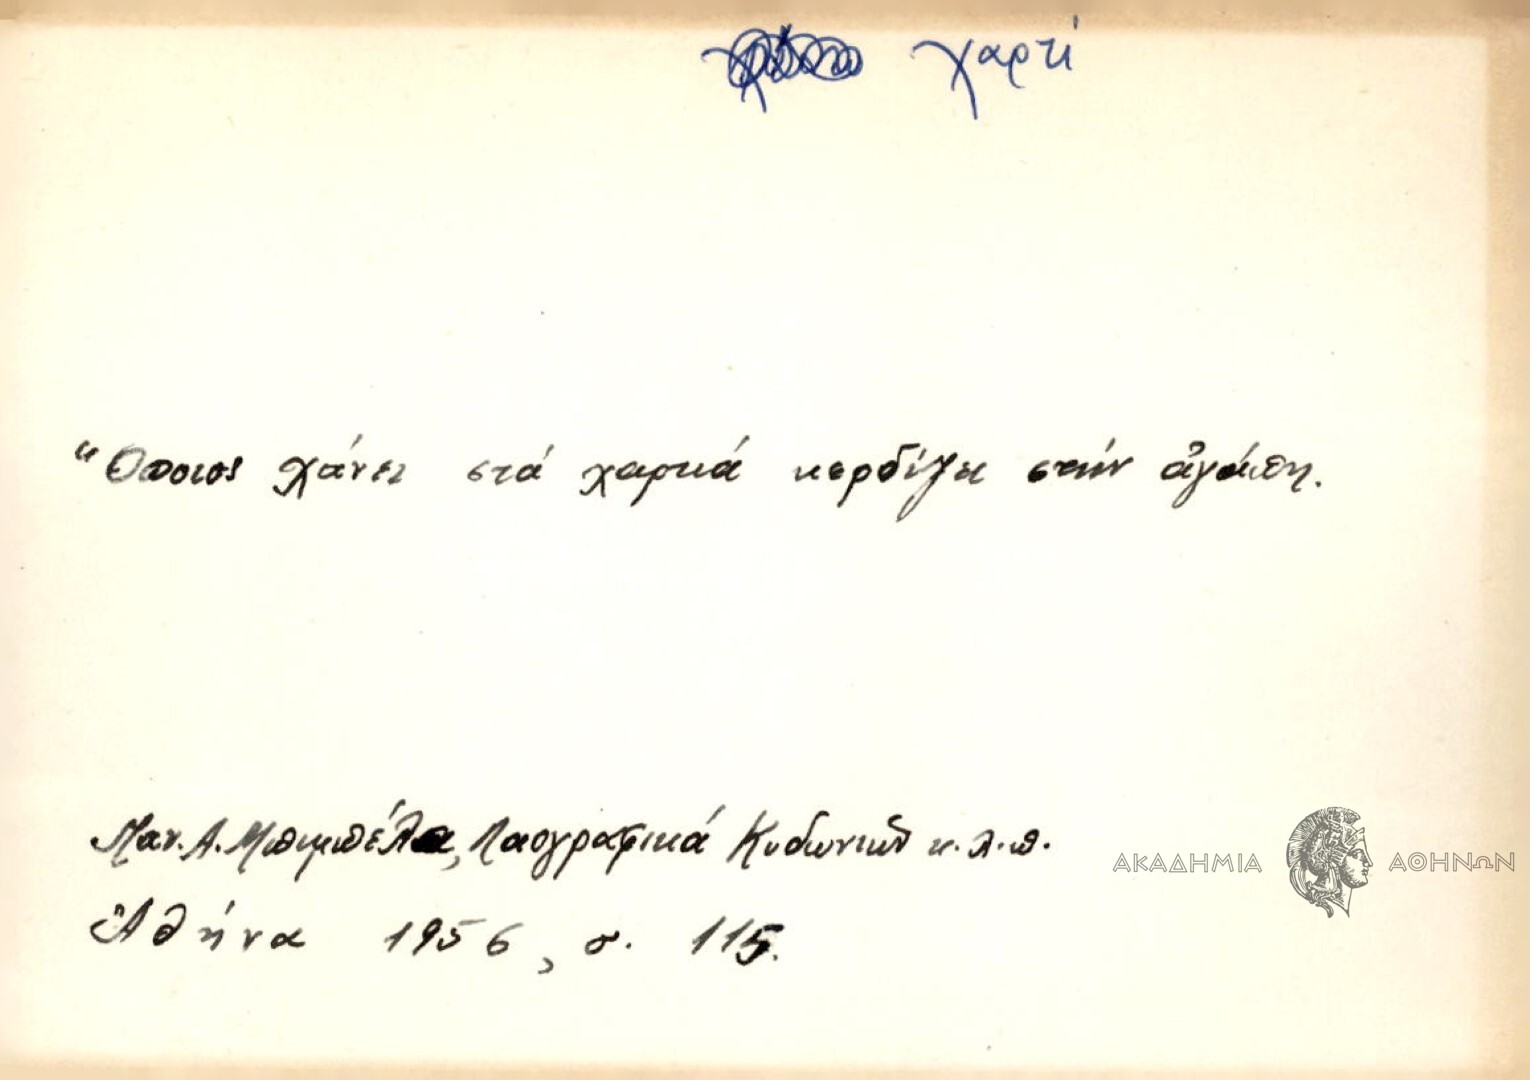 χαρτί
Ὅποιος χάνει στά χαρτιά κερδίζει στήν ἀγάπη.
Μαν. Α. Μπιμπέλα, Λαογραφικά Κυδωνιῶν κ.λ.π.
Ἀθήνα 1956, σ. 115.
ΑΚΑΔΗΜΙΑ ΑΘΗΝΩΝ